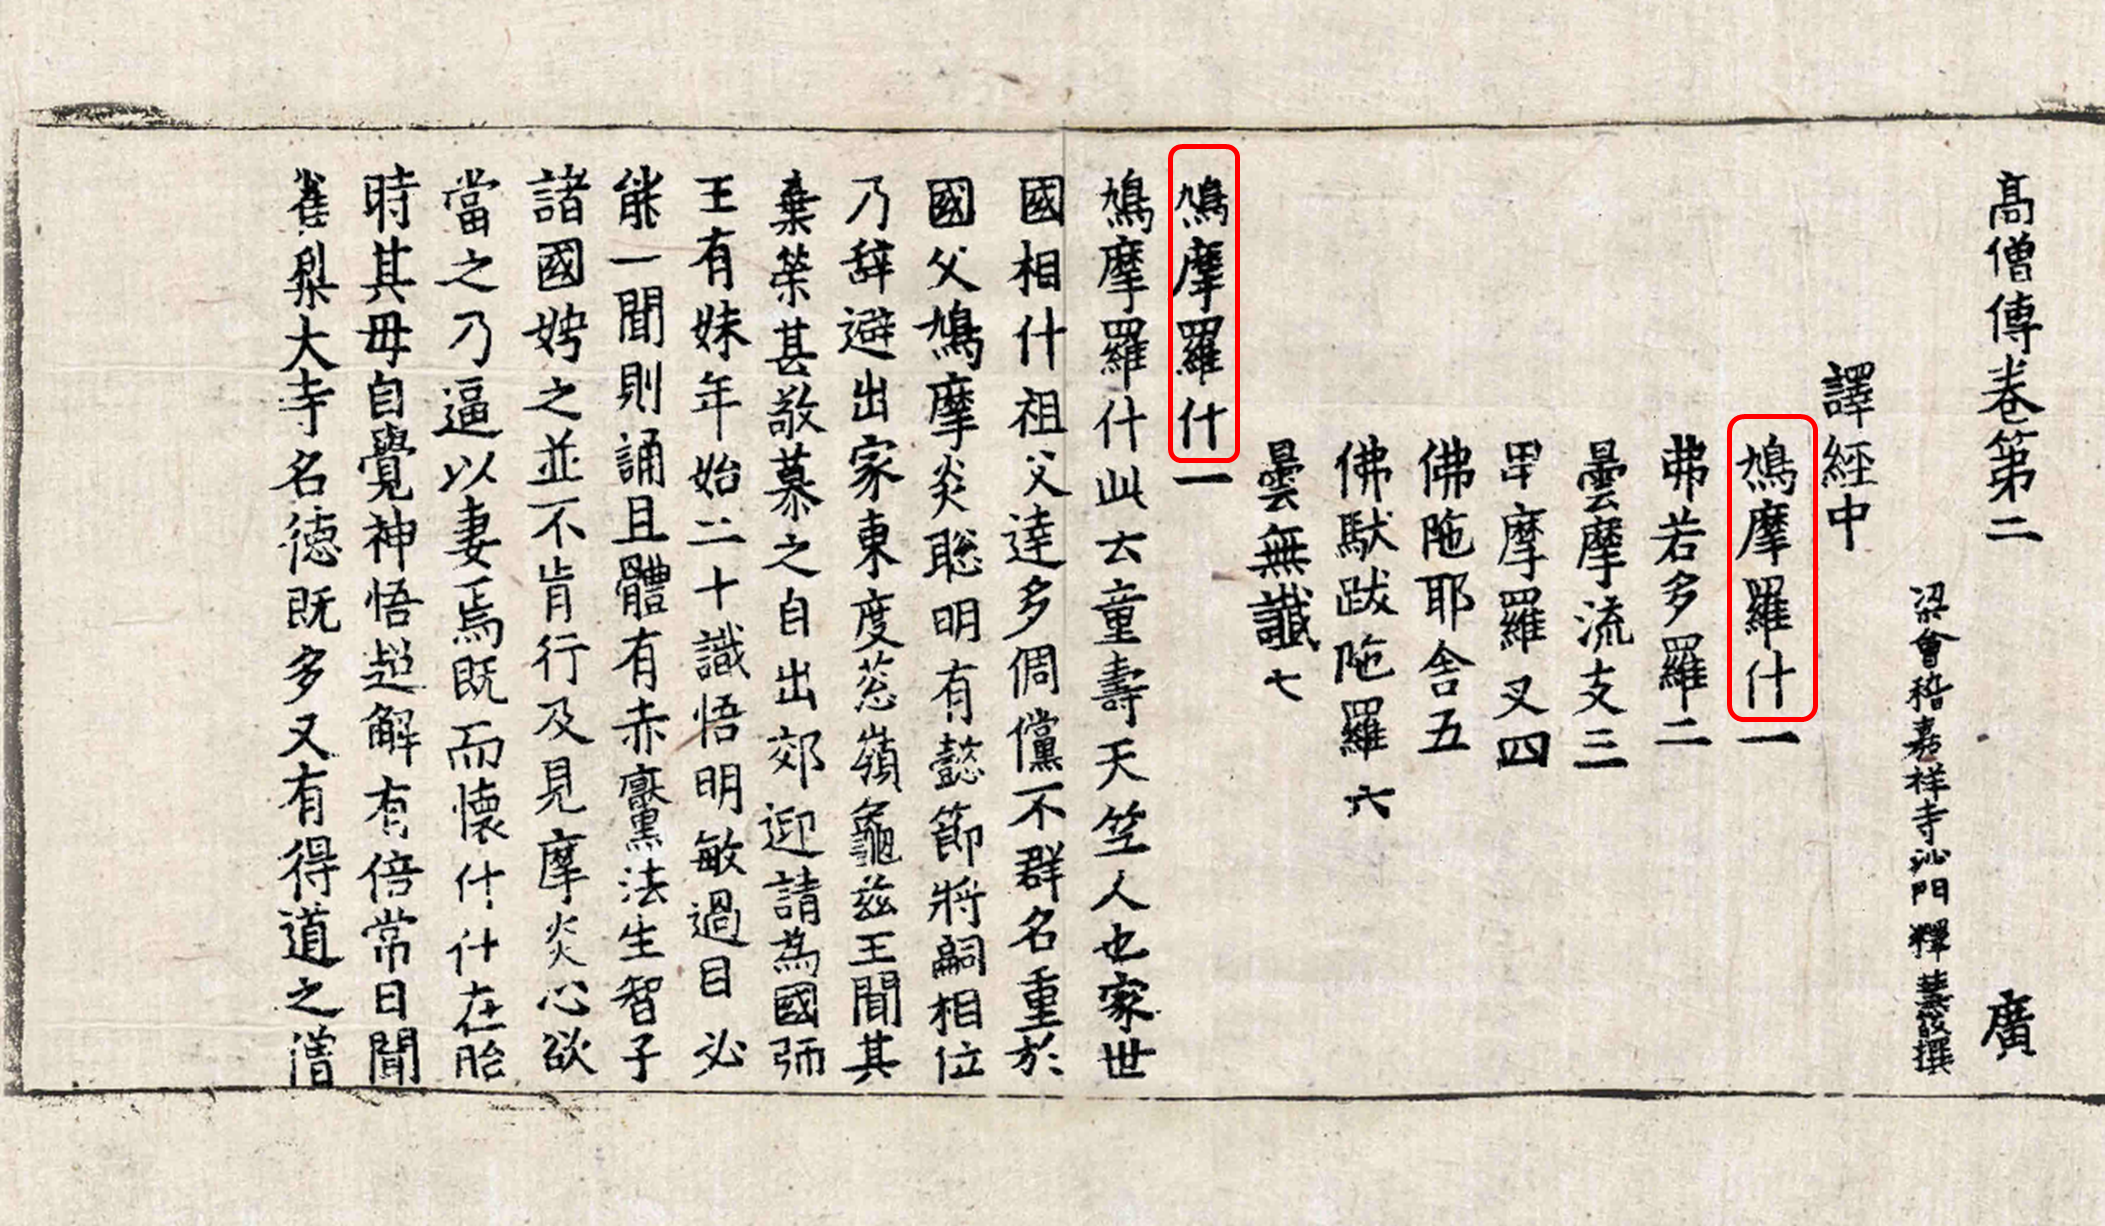 高僧傳卷第二 廣
梁會稽嘉祥寺沙門 釋慧皎撰
譯經中
鳩摩羅什一
弗若多羅二
曇摩流支三
卑摩羅叉四
佛陁耶舍五
佛馱跋陁羅六
曇無讖七
鳩摩羅什一
鳩摩羅什此云童壽天竺人也家世
國相什祖父達多倜儻不群名重於
國父鳩摩炎聡明有懿節將嗣相位
乃辞避出家東度葱嶺龜茲王聞其
棄榮甚敬慕之自出郊迎請為國師
王有妹年始二十識悟明敏過目必
能一聞則誦且體有赤黶法生智子
諸國娉之並不肯行及見摩炎心欲
當之乃逼以妻焉既而懷什什在胎
時其毋自覺神悟超解有倍常日聞
雀梨大寺名德既多又有得道之僧